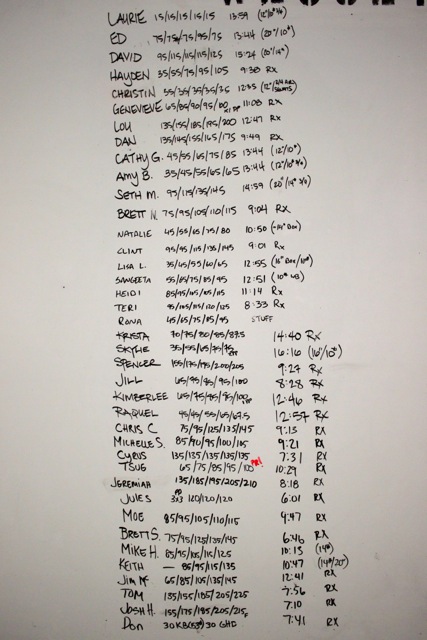 LAURIE 15/15/15/15/15 13:59
ED 75/75/75/95/75 13:44 (20"/10#)
DAVID 95/115/115/115/125 15:24 (20"/14#)
HAYDEN 35/55/75/95/105 9:38 RX
CHRISTIN 55/35/35/35/35 12:35
GENEVIEVE 65/85/90/95/100 11:08 RX
LOU 135/155/185/195/200 12:47 RX
DAN 135/145/155/165/175 9:49 RX
CATHY G. 45/55/65/75/85 13:44 (12"/10#)
AMY B. 35/45/55/65/65 13:44
SETH M. 95/115/135/145 14:59
BRETT N. 75/95/105/110/115 9:04 RX
NATALIE 45/55/65/75/80 10:50
CLINT 95/95/115/135/145 9:01 RX
LISA L. 35/45/55/60/65 12:55
SANGEETA 55/65/75/85/95 12:51
HEIDI 85/95/105/105/115 11:14 RX
TERI 95/105/115/120/125 8:33 RX
RONA 45/65/75/85/95 STUFF
KRISTA 70/75/80/85/87.5 14:40 RX
SKYLIE 35/55/65/75/75 16:16 (16"/10#)
SPENCER 155/175/195/200/205 9:27 RX
JILL 65/75/85/95/100 8:28 RX
KIMBERLEE 65/75/85/95/100 12:46 RX
RAQUEL 45/45/55/65/67.5 12:57 RX
CHRIS C 75/95/125/135/145 9:13 RX
MICHELLE S. 85/90/95/100/105 9:21 RX
CYRUS 135/135/135/135/135 7:31 RX
TSUE 65/75/85/95/100 PR! 10:29 RX
JEREMIAH 135/185/195/205/210 8:18 RX
JULES 3x3 120/120/120 6:01 RX
MOE 85/95/105/110/115 9:47 RX
BRETT S. 75/95/125/135/145 6:46 RX
MIKE H. 85/95/105/115/125 10:13 (14#)
KEITH — 85/95/115/135 10:47 (14#/20")
JIM M. 65/85/105/135/145 12:41 RX
TOM 135/155/185/205/225 7:56 RX
JOSH H. 155/175/195/205/215 7:10 RX
DON 30 KB 30 GHD 7:41 RX